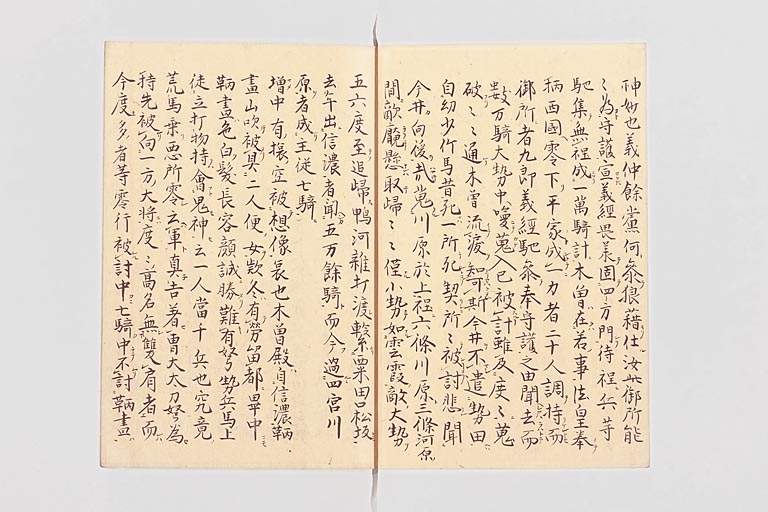 神妙也義仲餘黨何参狼藉仕汝此御所能
〻為守護宣義經畏義固四方門待程兵等
馳集無程成一萬騎計木曽在若事法皇奉
抦西國零下平家成一力者二十人調持而
御所者九郎義經馳参奉守護之由聞去而
数万騎大勢中喚蒐入已被討雖及度〻蒐
破〻〻通木曽流涙知斯今井不遣勢田
自幼少竹馬昔死一所死契所〻被討悲聞
今井向後哉蒐川原於上程六條川原三條河原
間敵麁懸取歸〻〻僅小勢如雲霞敵大勢
五六度至追歸鴨河雜打渡繋粟田口松坂
去年出信濃者聞五万餘騎而今過四宮川
原者成主從七騎
増中有旅空被想像哀也木曽殿自信濃鞆
畫山吹被具二人便女欵冬有勞留都畢中
鞆畫色白髮長容顔誠勝難有弩勢兵馬上
徒立打物持會鬼神云一人當千兵也究竟
荒馬乗悪所零云軍真告著曹大太刀弩為
持先被向一方大将度〻高名無雙肩者而
今度多者等零行被討中七騎中不討鞆畫